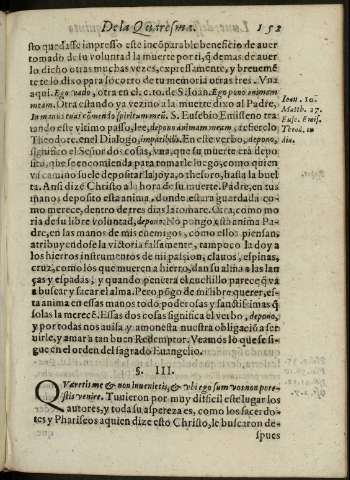 De la Quaresma. 152
sto quedasse impresso este incõparable beneficio de auer
tomado de su voluntad la muerte por ti, q̃ demas de auer
lo dicho otras muchas vezes, expressamente, y breuemē
te te lo diso para socorro de tu memoria otras tres. Vna
aqui. Ego vado, otra en el. c. 10. de S. Ioan. Ego pono animam
meam. Otra estando ya vezino a la muerte dixo al Padre,
In manus tuas cōmendo spiritum meū. S. Eusebio Emisseno tra
tando este vltimo passo, lee, depono animam meam, refierelo
Theodore. en el Dialogo, impatibilis. En este verbo, depono,
significo el Señor dos cosas, vna, que su muerte era depo
sito, que se encomienda para tomarle luego, como quien
va camino suele depositar la joya, o thesoro, hasta la buel
ta. Ansi dize Christo a la hora de su muerte. Padre, en tus
manos deposito esta anima, donde estara guardada co-
mo merece, dentro de tres dias la tomare. Otra, como mo
ria de su libre voluntad, depono: No pongo esta anima Pa-
dre, en las manos de mis enemigos, como ellos piensan,
atribuyendose la victoria falsamente, tampoco la doy a
los hierros instrumentos de mi passion, clauos, espinas,
cruz, como los que mueren a hierro, dan su alma a las lan
ças y espadas; y quando penetra el cuchillo parece q̃ va
a buscar y sacar el alma. Pero põgo de mi libre querer, es-
ta anima en essas manos todo poderosas y sanctissimas q̃
solas la merecẽ. Essas dos cosas significa el verbo, depono,
y por todas nos auisa y amonesta nuestra obligaciõ a ser
uirle, y amar a tan buen Redemptor. Veamos lo que se si-
gue en el orden del sagrado Euangelio.
Ioan. 10.
Matth. 27.
Euse. Emis.
Theod. in
dia.
§. III.
Quæretis me & non inuenietis, & vbi ego sum vos non pote-
stis venire. Tuuieron por muy dificil este lugar los
autores, y toda su aspereza es, como los sacerdo-
tes y Phariseos a quien dize esto Christo, le buscaron des-
pues